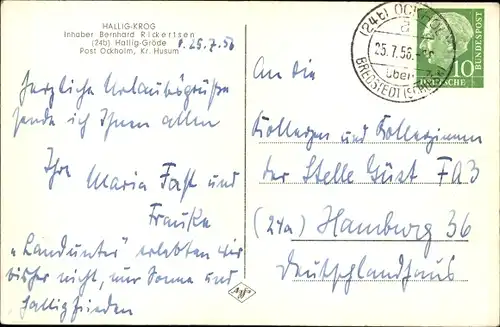 HALLIG-KROG
Inhaber Bernhard Rickertsen
(24b) Hallig-Gröde
Post Ockholm, Kr. Husum
d. 25.7.56
Herzliche Urlaubsgrüße
sende ich Ihnen allen
Ihre Maria Fast und
Frauke
„Landunter" erlebten wir
bisher nicht, nur Sonne und
Halligfrieden
Agfa
(24b) OCKHOLM
a
25.7.56.
über
BREDSTEDT (SCHLESW)
DEUTSCHE
BUNDESPOST
10
An die
Kollegen und Kolleginnen
der Stelle Güst FA3
(24a) Hamburg 36
Deutschlandhaus